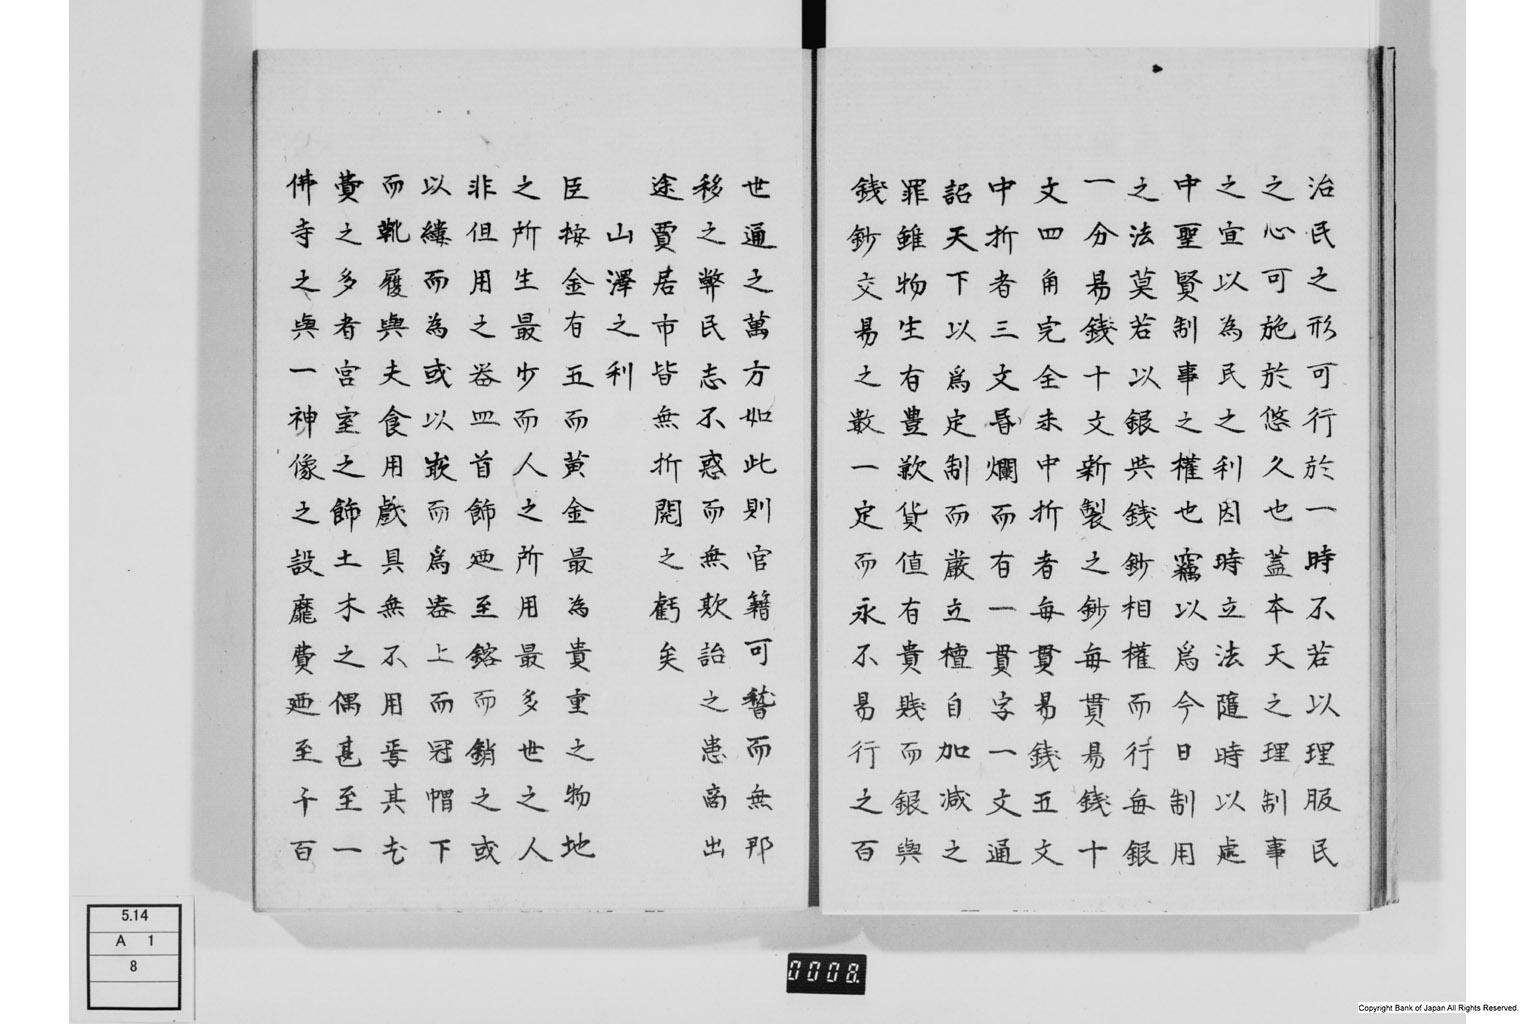 治民之形可行於一時不若以理服民
之心可施於悠久也蓋本天之理制事
之宣以為民之利因時立法隨時以處
中聖賢制事之權也竊以爲今日制用
之法莫若以銀與錢鈔相權而行每銀
一分易錢十文新製之鈔每貫易錢十
文四角完全未中折者每貫易錢五文
中折者三文昏爛而有一貫字一文通
詔天下以爲定制而嚴立檀自加減之
罪雖物生有豊歉貨值有貴賤而銀與
錢鈔交易之數一定而永不易行之百
世通之萬方如此則官籍可稽而無那
移之弊民志不惑而無欺詒之患商出
途賈居市皆無折閱之虧矣
山澤之利
臣按金有五而黃金最為貴重之物地
之所生最少而人之所用最多世之人
非但用之器皿首飾廼至鎔而銷之或
以縷而為或以嵌而爲器上而冠帽下
而靴履與夫食用戲具無不用焉其尤
費之多者宮室之飾土木之偶甚至一
佛寺之興一神像之設靡費廼至千百
5.14
A 1
8
0008.
Copyright Bank of Japan All Rights Reserved.